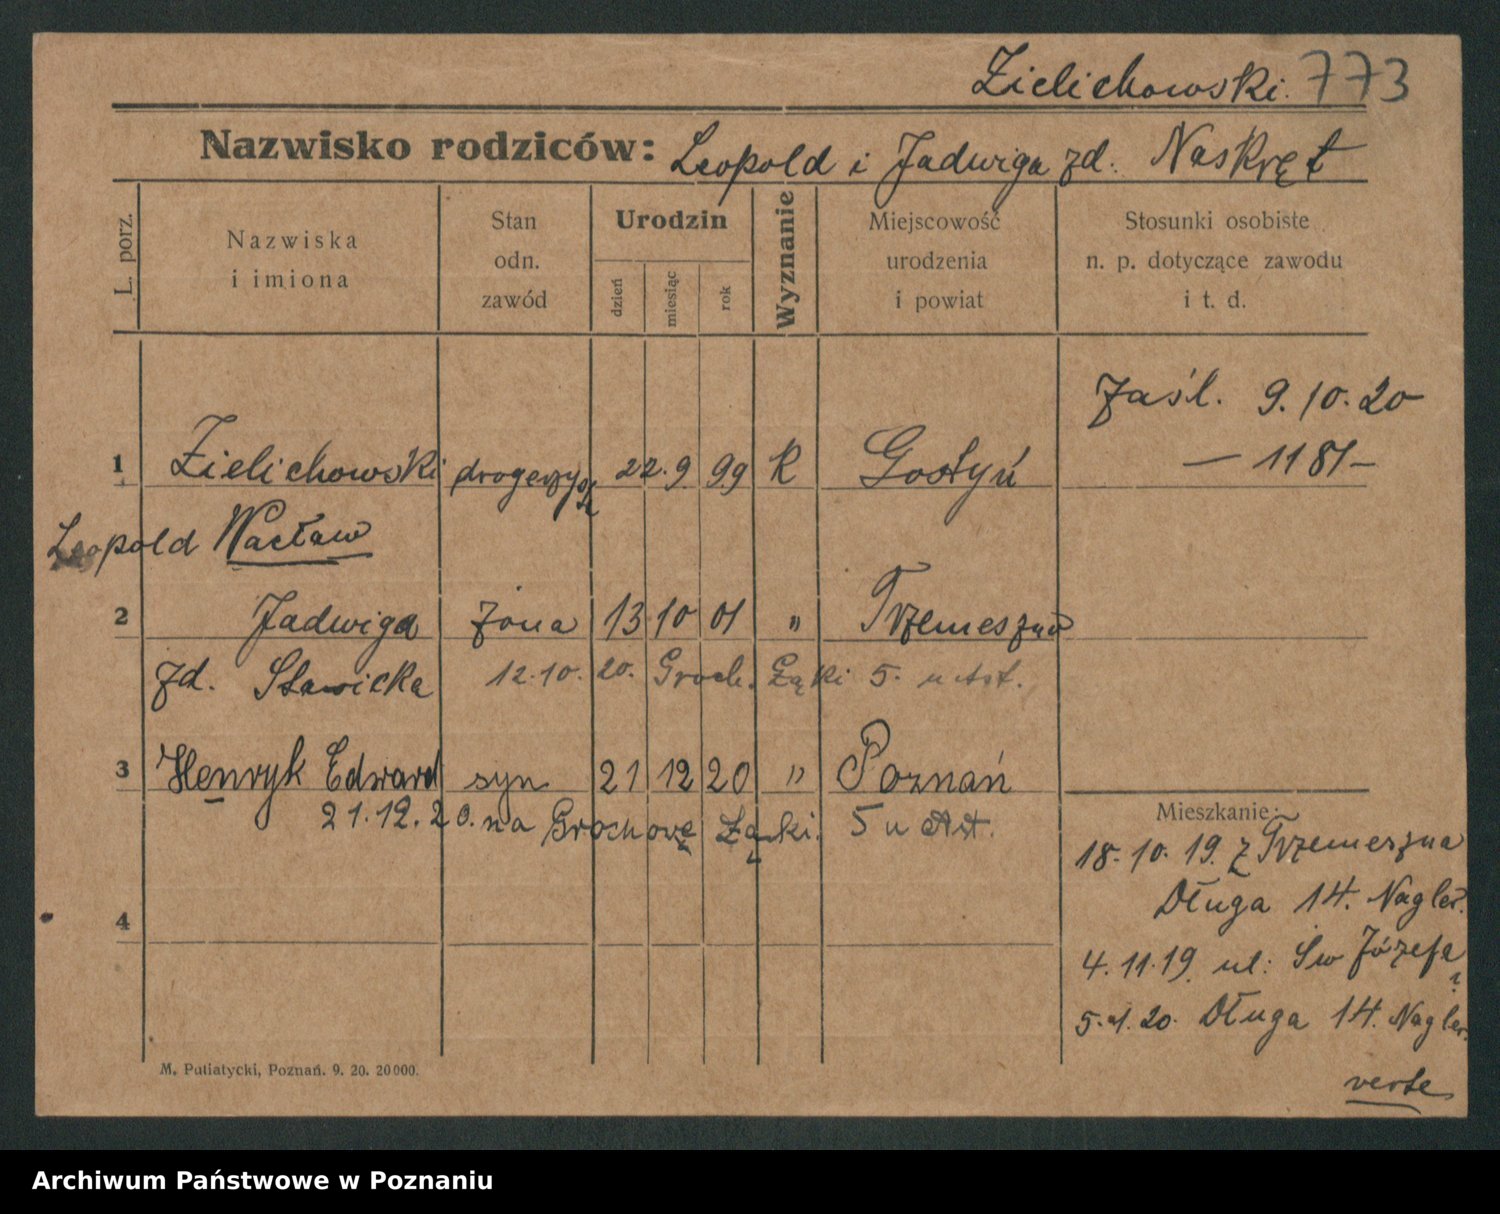 Zielichowski. 773
Nazwisko rodziców: Leopold i Jadwiga zd. Naskręt
L. porz.
Nazwiska
i imiona
Stan
odn.
zawód
Urodzin
dzień
miesiąc
rok
Wyznanie
Miejscowość
urodzenia
i powiat
Stosunki osobiste
n. p. dotyczące zawodu
i t. d.
Zaśl. 9.10.20
— 1181 —
1 Zielichowski drogerzysta 22. 9 99 K Gostyń
Leopold Wacław
2 Jadwiga żona 13 10 01 " Trzemeszno
zd. Stawicka 12.10. 20. Groch. Łąki 5. u Ast.
3 Henryk Edward syn 21 12 20 " Poznań
21.12.20. na Grochowe Łąki. 5 u Ast.
4
Mieszkanie:
18. 10. 19. z Trzemeszna
Długa 14. Nagler.
4. 11. 19. ul: Św Józefa
5. 1. 20. Długa 14. Nagler.
verte
M. Putiatycki, Poznań. 9. 20. 20000.
Archiwum Państwowe w Poznaniu